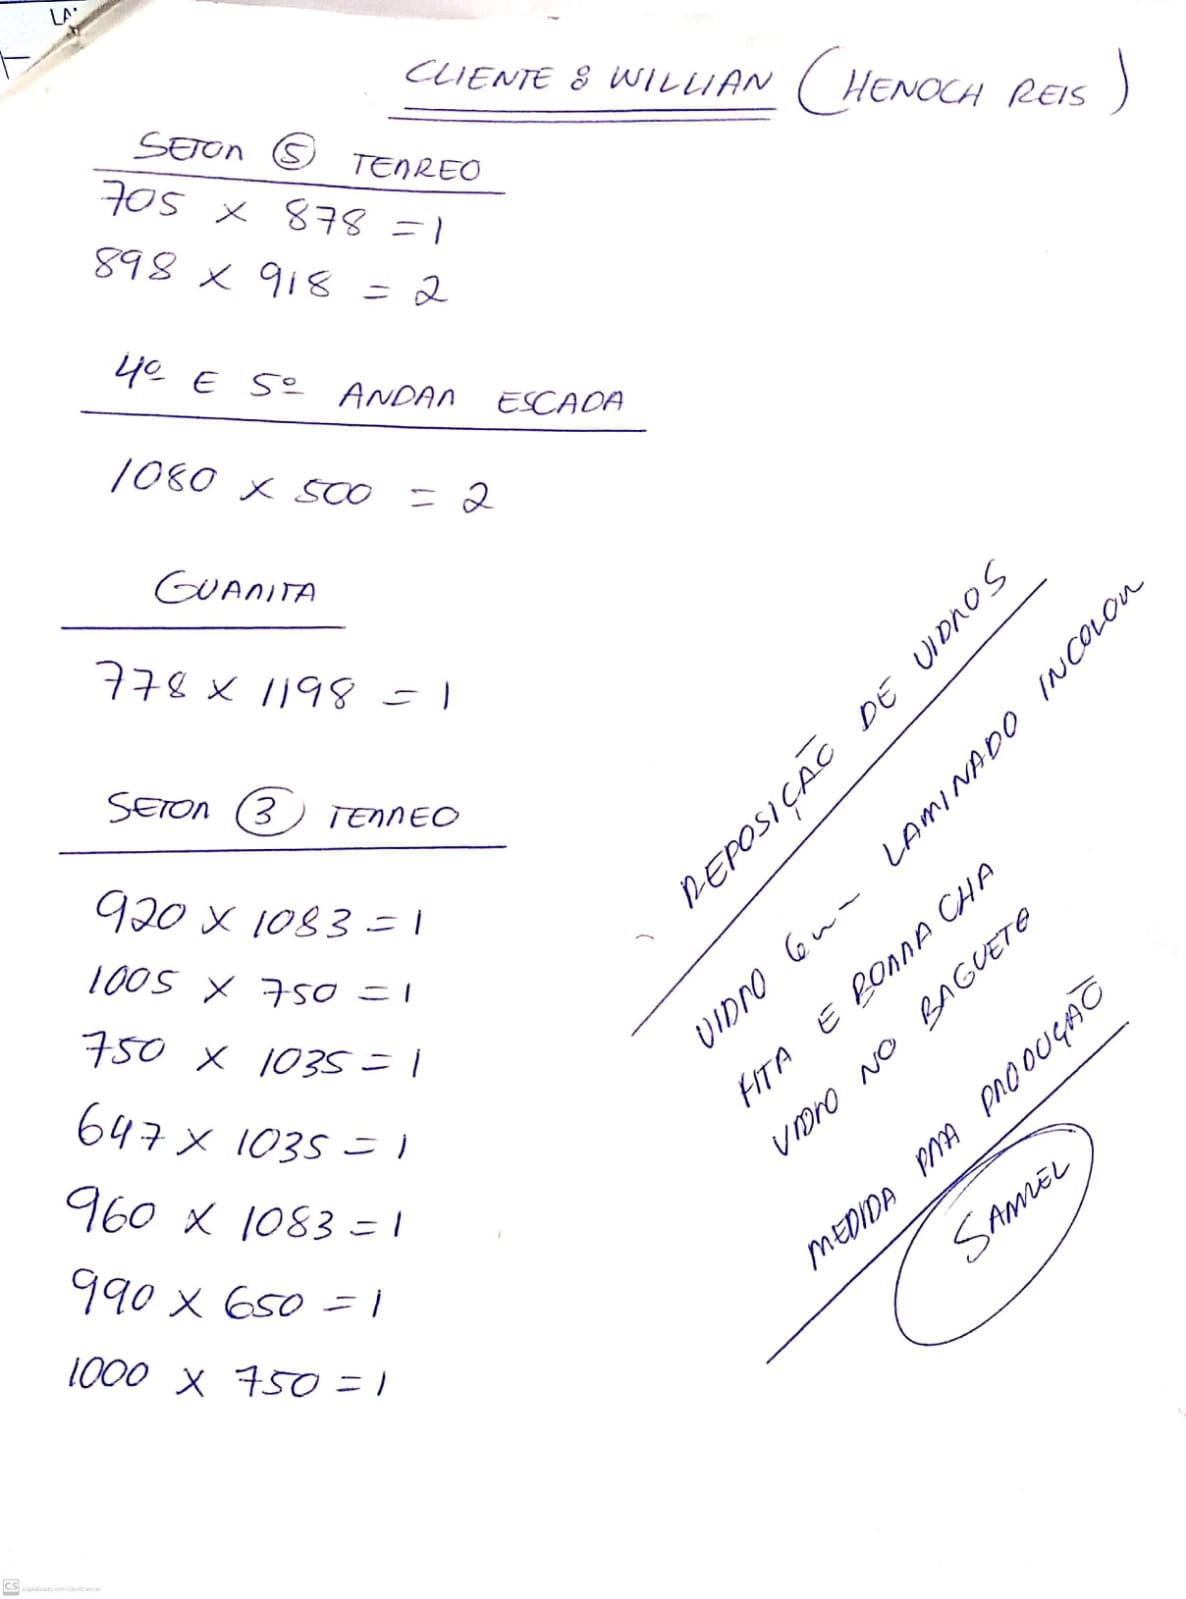 CLIENTE: WILLIAN (HENOCH REIS)
SETOR 5 TERREO
705 x 878 = 1
898 x 918 = 2
4º E 5º ANDAR ESCADA
1080 x 500 = 2
GUARITA
778 x 1198 = 1
SETOR 3 TERREO
920 x 1083 = 1
1005 x 750 = 1
750 x 1035 = 1
647 x 1035 = 1
960 x 1083 = 1
990 x 650 = 1
1000 x 750 = 1
REPOSIÇÃO DE VIDROS
VIDRO 6m - LAMINADO INCOLOR
FITA E BORRACHA
VIDRO NO BAGUETE
MEDIDA PRA PRODUÇÃO
SAMUEL
CS Digitalizado com CamScanner